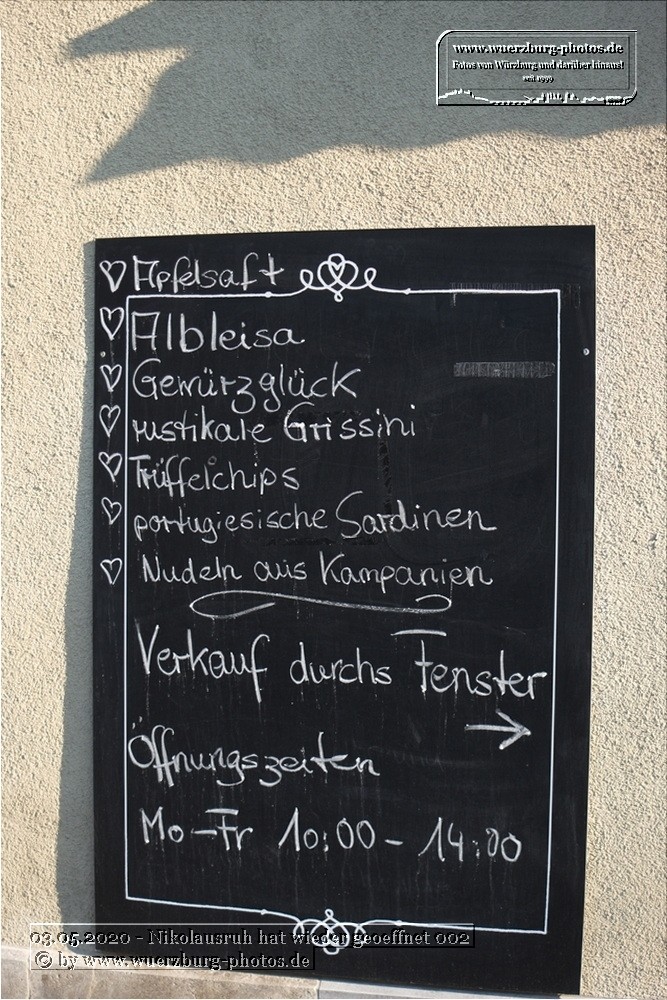 www.wuerzburg-photos.de
Fotos von Würzburg und darüber hinaus!
seit 1999
Apfelsaft
Albleisa
Gewürzglück
rustikale Grissini
Trüffelchips
portugiesische Sardinen
Nudeln aus Kampanien
Verkauf durchs Fenster
→
Öffnungszeiten
Mo-Fr 10:00-14:00
03.05.2020 - Nikolausruh hat wieder geoeffnet 002
© by www.wuerzburg-photos.de